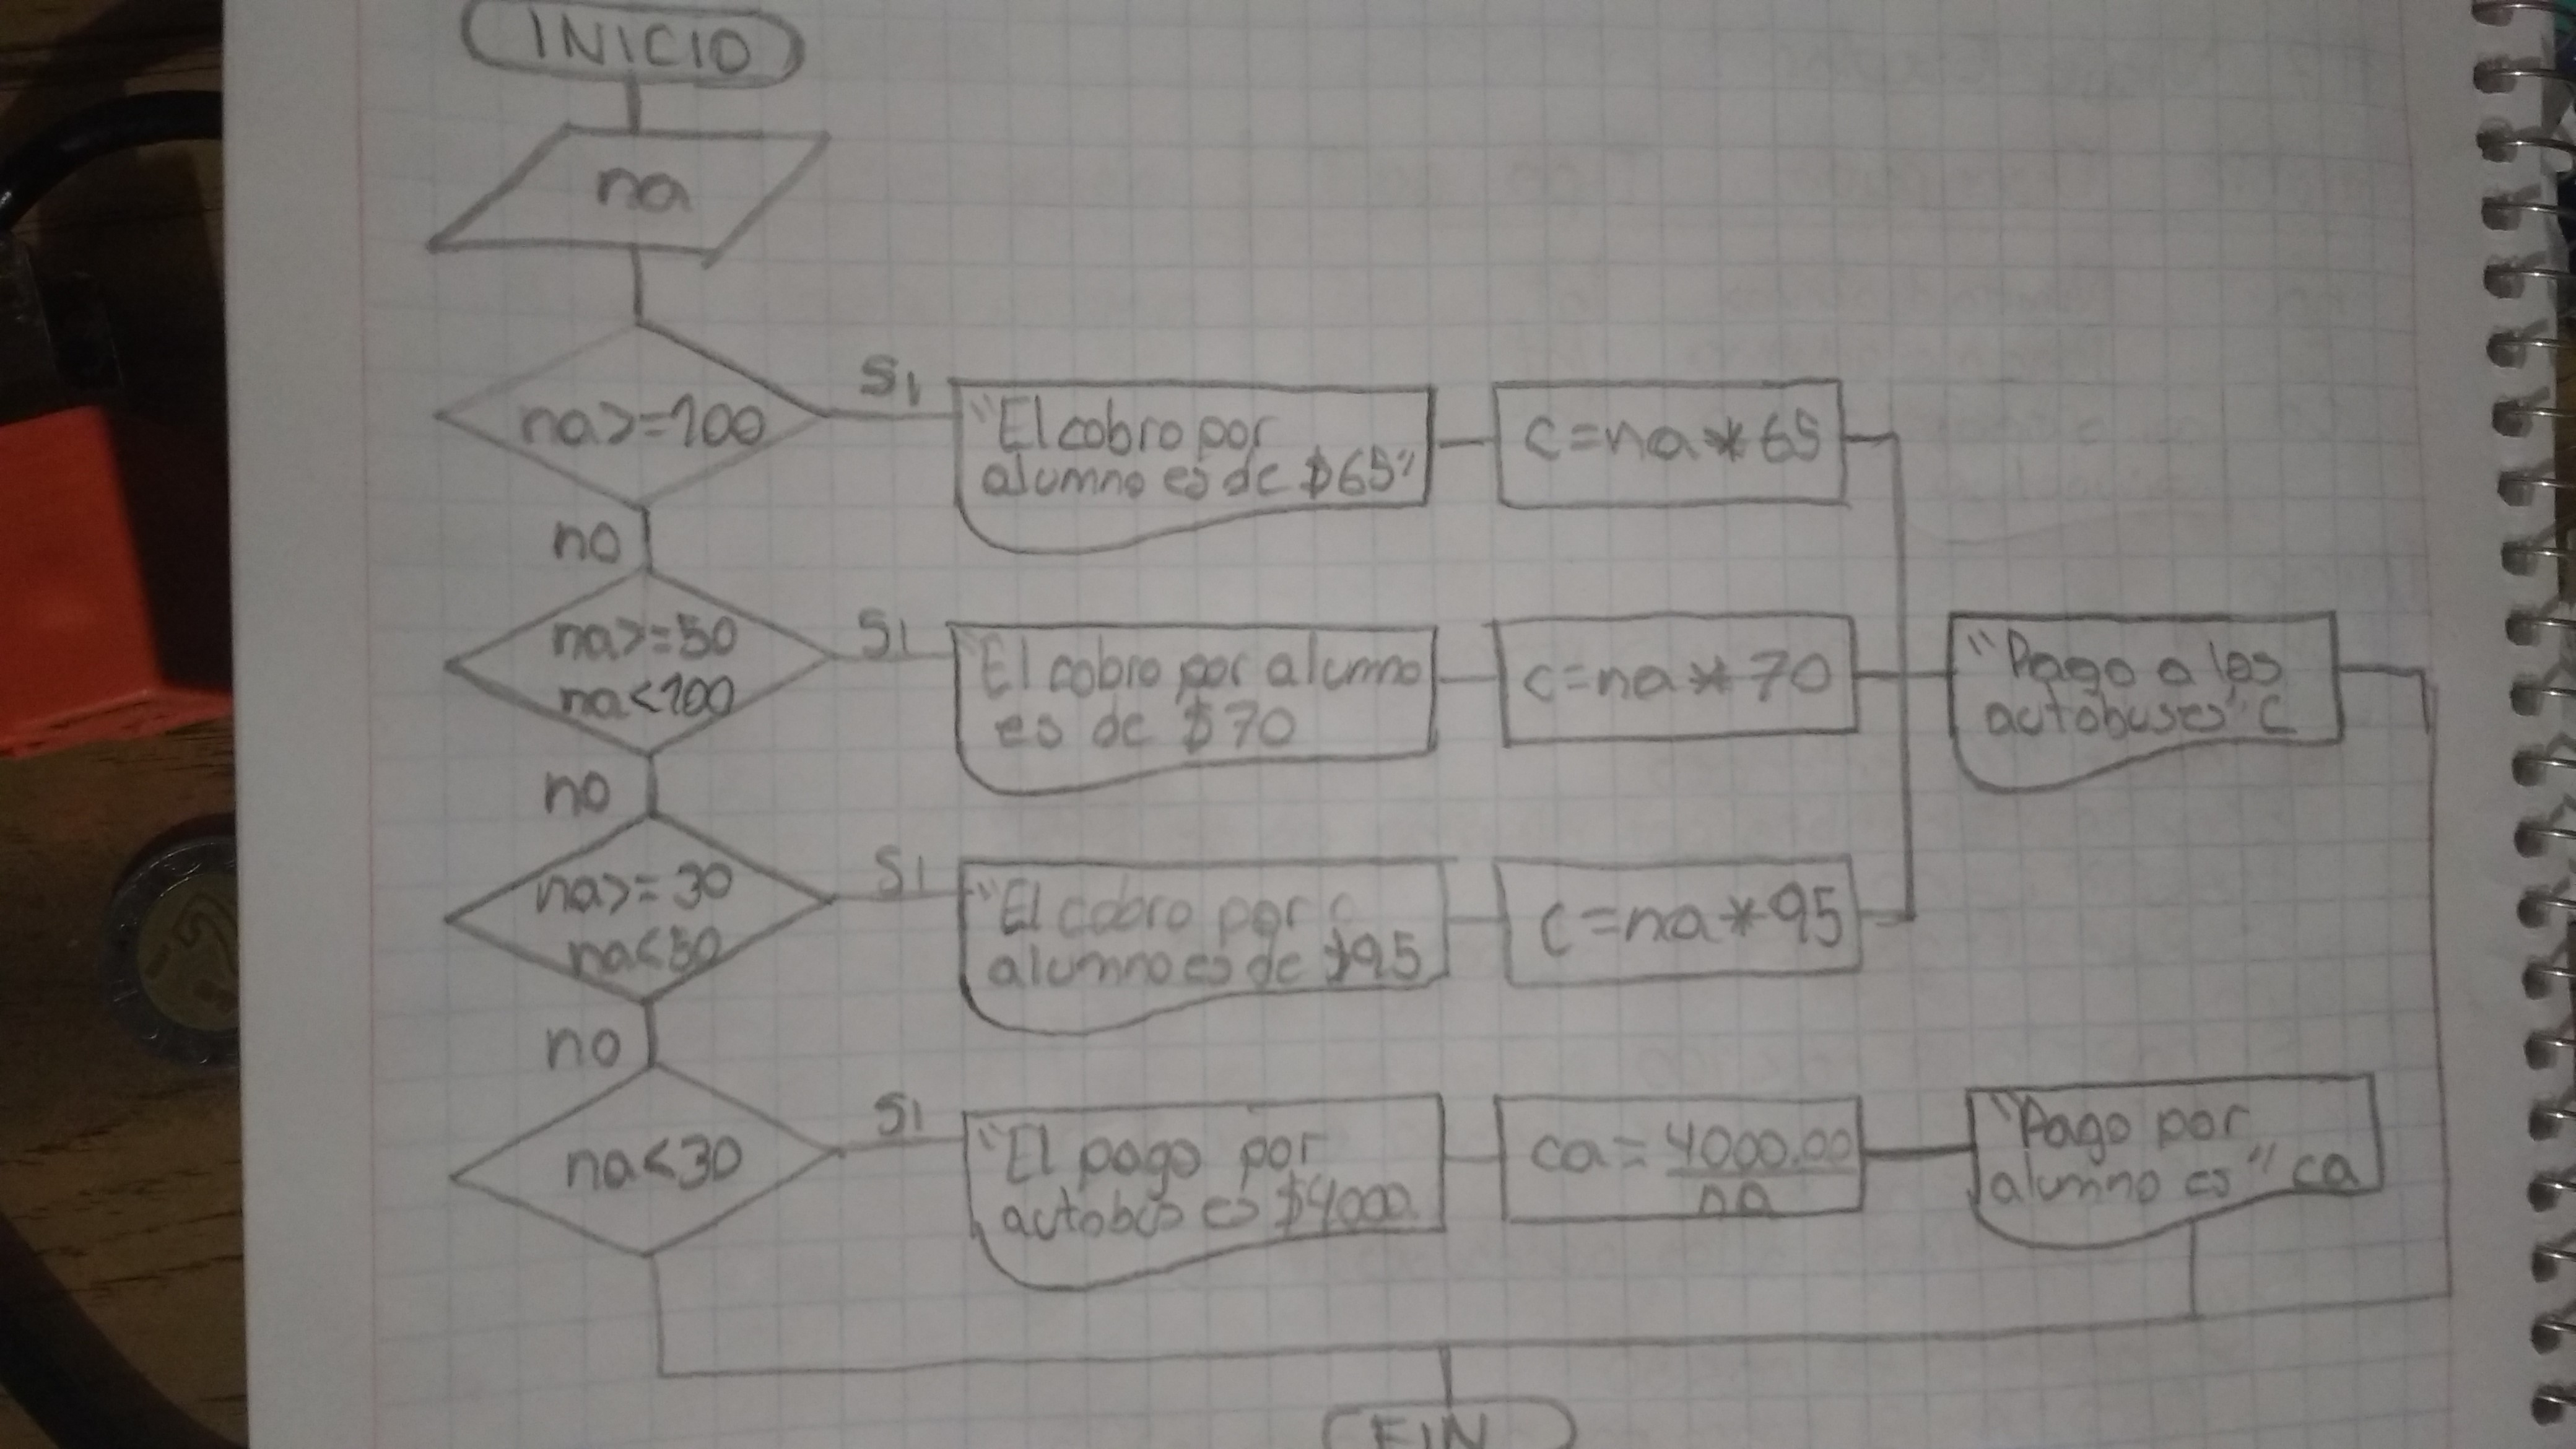 INICIO
na
na>=100
Si
"El cobro por
alumno es de $65"
c=na*65
no
na>=50
na<100
Si
El cobro por alumno
es de $70
c=na*70
"Pago a los
autobuses" C
no
na>=30
na<50
Si
"El cobro por
alumno es de $95
c=na*95
no
na<30
Si
"El pago por
autobus es $4000.
ca=4000.00
na
"Pago por
alumno es" ca
FIN